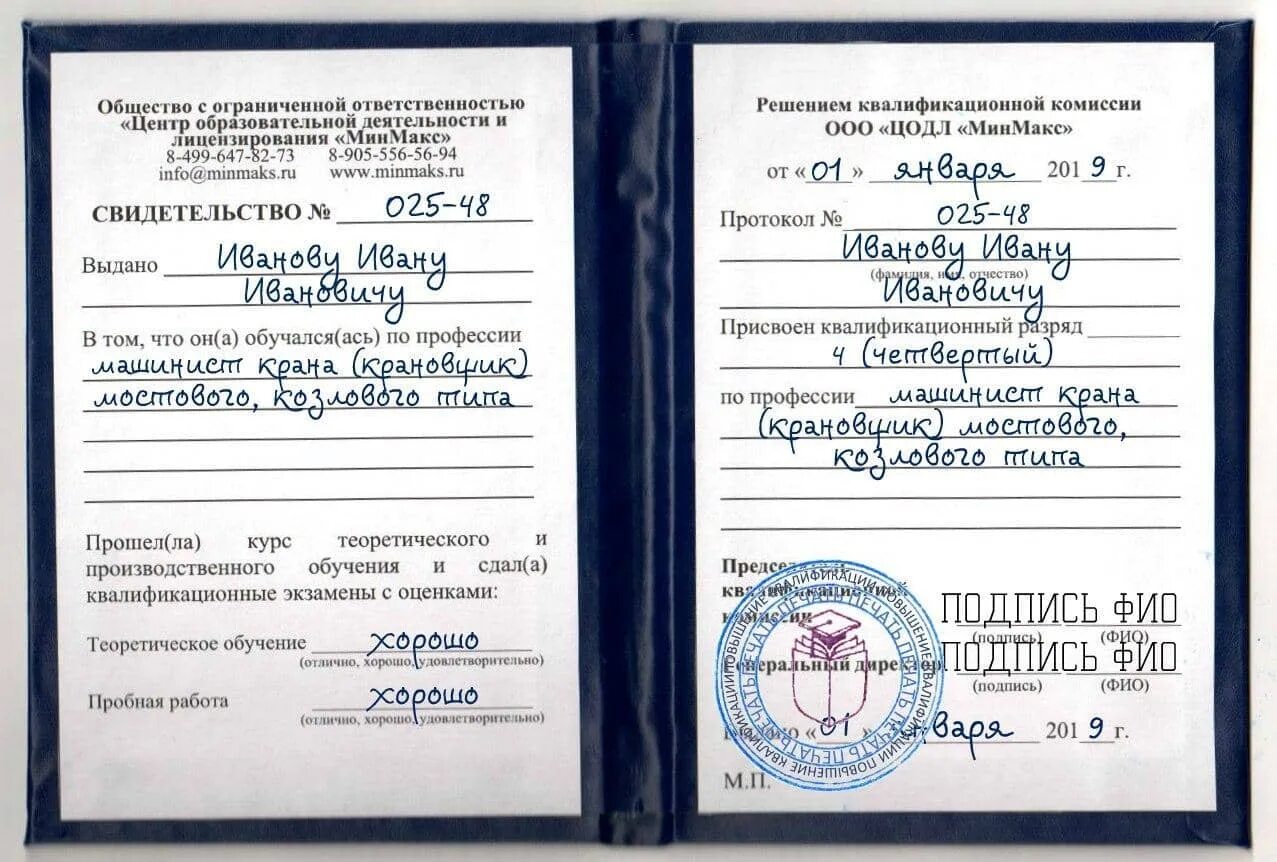 Общество с ограниченной ответственностью
«Центр образовательной деятельности и
лицензирования «МинМакс»
8-499-647-82-73 8-905-556-56-94
info@minmaks.ru www.minmaks.ru
СВИДЕТЕЛЬСТВО № 025-48
Выдано Иванову Ивану
Ивановичу
В том, что он(а) обучался(ась) по профессии
машинист крана (крановщик)
мостового, козлового типа
Прошел(ла) курс теоретического и
производственного обучения и сдал(а)
квалификационные экзамены с оценками:
Теоретическое обучение хорошо
(отлично, хорошо, удовлетворительно)
Пробная работа хорошо
(отлично, хорошо, удовлетворительно)
Решением квалификационной комиссии
ООО «ЦОДЛ «МинМакс»
от «01» января 2019 г.
Протокол № 025-48
Иванову Ивану
(фамилия, имя, отчество)
Ивановичу
Присвоен квалификационный разряд
4 (четвертый)
по профессии машинист крана
(крановщик) мостового,
козлового типа
Председатель
квалификационной
комиссии ПОДПИСЬ ФИО
(подпись) (ФИО)
Генеральный директор ПОДПИСЬ ФИО
(подпись) (ФИО)
«01» января 2019 г.
М.П.
ПОВЫШЕНИЕ КВАЛИФИКАЦИИ ПОВЫШЕНИЕ КВАЛИФИКАЦИИ ПОВЫШЕНИЕ КВАЛИФИКАЦИИ
ПЕЧАТЬ ПЕЧАТЬ ПЕЧАТЬ ПЕЧАТЬ ПЕЧАТЬ ПЕЧАТЬ